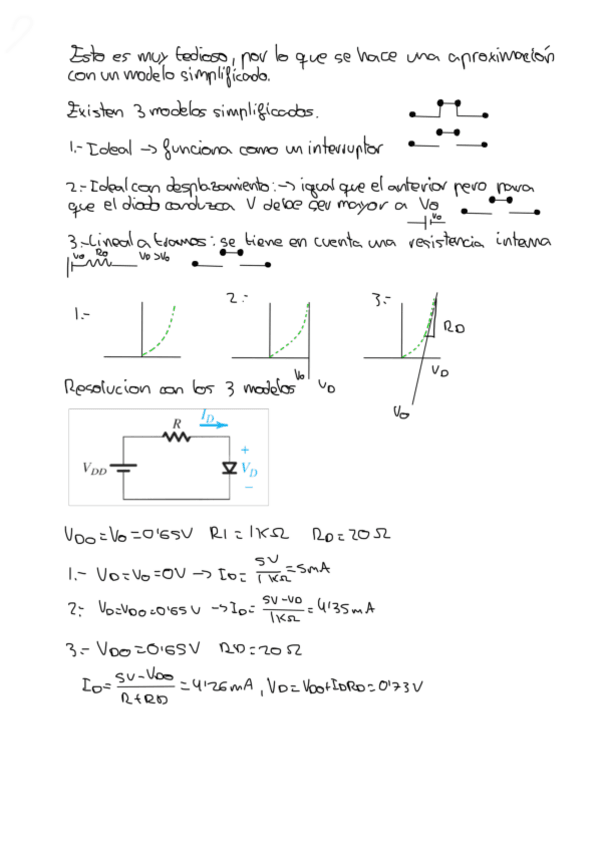 Esto es muy tedioso, por lo que se hace una aproximación
con un modelo simplificado.
Existen 3 modelos simplificados.
1.- Ideal -> funciona como un interruptor
2.- Ideal con desplazamiento: -> igual que el anterior pero para
que el diodo conduzca V debe ser mayor a Vo
Vo
3.- Lineal a tramos: se tiene en cuenta una resistencia interna
Vo RD VD>Vo
1.- 2.- 3.-
RD
Vo VD VD
Resolucion con los 3 modelos
Vo
R ID
VDD + VD -
VDO = Vo = 0'65V R1 = 1KΩ RD = 20Ω
1.- VD = Vo = 0V -> ID = 5V / 1KΩ = 5mA
2.- VD = VDO = 0'65V -> ID = 5V - VD / 1KΩ = 4'35mA
3.- VDO = 0'65V RD = 20Ω
ID = 5V - VDO / R + RD = 4'26mA, VD = VDO + IDRD = 0'73V